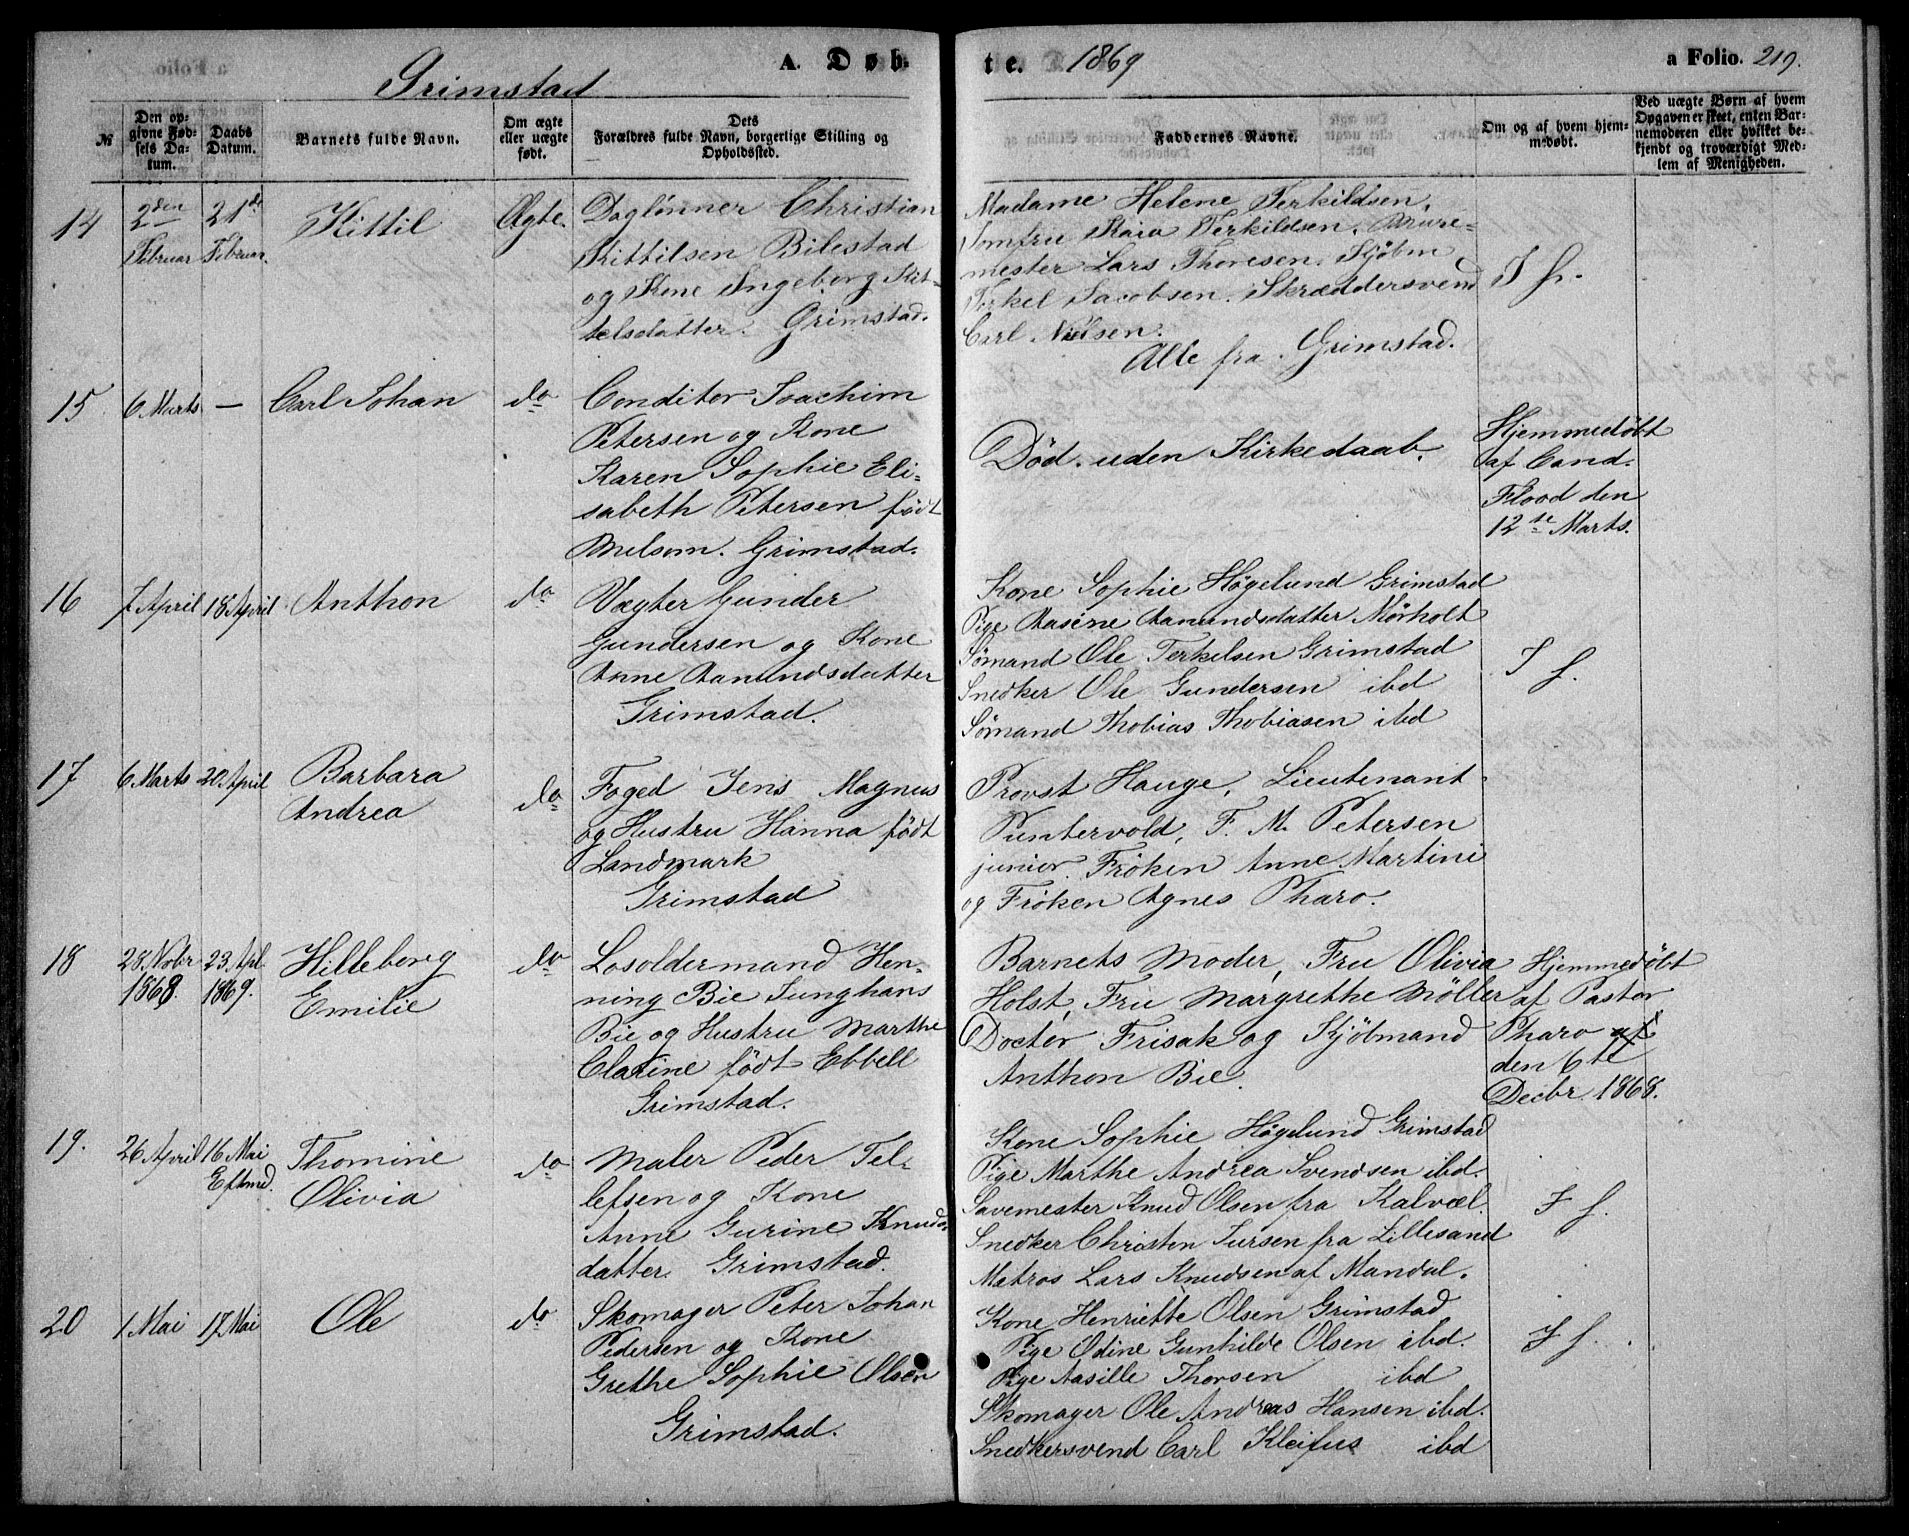 Grimstad
A. Døbte. 1869
a Folio. 219.
№
Den opgivne Fødsels Datum.
Daabs Datum.
Barnets fulde Navn.
Om ægte eller uægte født.
Dets Forældres fulde Navn, borgerlige Stilling og Opholdssted.
Faddernes Navne.
Om og af hvem hjemmedøbt.
Ved uægte Børn af hvem Opgaven er skeet, enten Barnemoderen eller hvilket bekjendt og troværdigt Medlem af Menigheden.
14
2den Februar
21de Februar.
Kittil
Ægte.
Daglønner Christian
Kittilsen Bilestad
og Kone Ingeborg Kit-
telsdatter. Grimstad.
Madame Helene Terkildsen.
Jomfru Kaia Terkildsen. Mure=
mester Lars Thoresen. Kjøbm
Terkel Jacobsen. Skræddersvend
Carl Nielsen.
Alle fra Grimstad.
J h.
15
6 Marts
—
Carl Johan
do
Conditor Joachim
Petersen og Kone
Karen Sophie Eli=
sabeth Petersen født
Melsom. Grimstad.
Død uden Kirkedaab.
Hjemmedøbt
af Cand.
Flood den
12te Marts.
16
7 April
18 April
Anthon
do
Vægter Gunder
Gundersen og Kone
Anne Aanundsdatter
Grimstad.
Kone Sophie Høgelund Grimstad
Pige Aasine Aanundsdatter Mørholt
Sømand Ole Terkelsen Grimstad
Snedker Ole Gundersen ibd
Sømand Thobias Thobiasen ibd
J f.
17
6 Marts
20 April
Barbara
Andrea
do
Foged Jens Magnus
og Hustru Hanna født
Landmark
Grimstad
Provst Hauge, Lieutenant
Puntervold, F. M. Petersen
junior. Frøken Anne Martini
og Frøken Agnes Pharo.
18
28 Nobr
1868.
23 Apl
1869.
Hilleborg
Emilie
do
Losoldermand Hen-
ning Bie Junghans
Bie og Hustru Marthe
Clarine født Ebbell
Grimstad.
Barnets Moder, Fru Olivia
Holst, Fru Margrethe Møller
Doctor Frisak og Kjøbmand
Anthon Bie.
Hjemmedøbt
af Pastor
Pharo
den 6te
Decbr 1868.
19.
26 April
16 Mai
Eftmd.
Thomine
Olivia
do
Maler Peder Tel-
lefsen og Kone
Anne Gurine Knuds-
datter. Grimstad.
Kone Sophie Høgelund Grimstad
Pige Marthe Andrea Svendsen ibd.
Savemester Knud Olsen fra Kalvæl.
Snedker Christen Jursen fra Lillesand
Matros Lars Knudsen af Mandal.
J f.
20
1 Mai
17 Mai
Ole
do
Skomager Peter Johan
Pedersen og Kone
Grethe Sophie Olsen
Grimstad.
Kone Henriette Olsen Grimstad
Pige Odine Gunhilde Olsen ibd.
Pige Aasille Thorsen ibd
Skomager Ole Andreas Hansen ibd.
Snedkersvend Carl Kleifus ibd
J f.